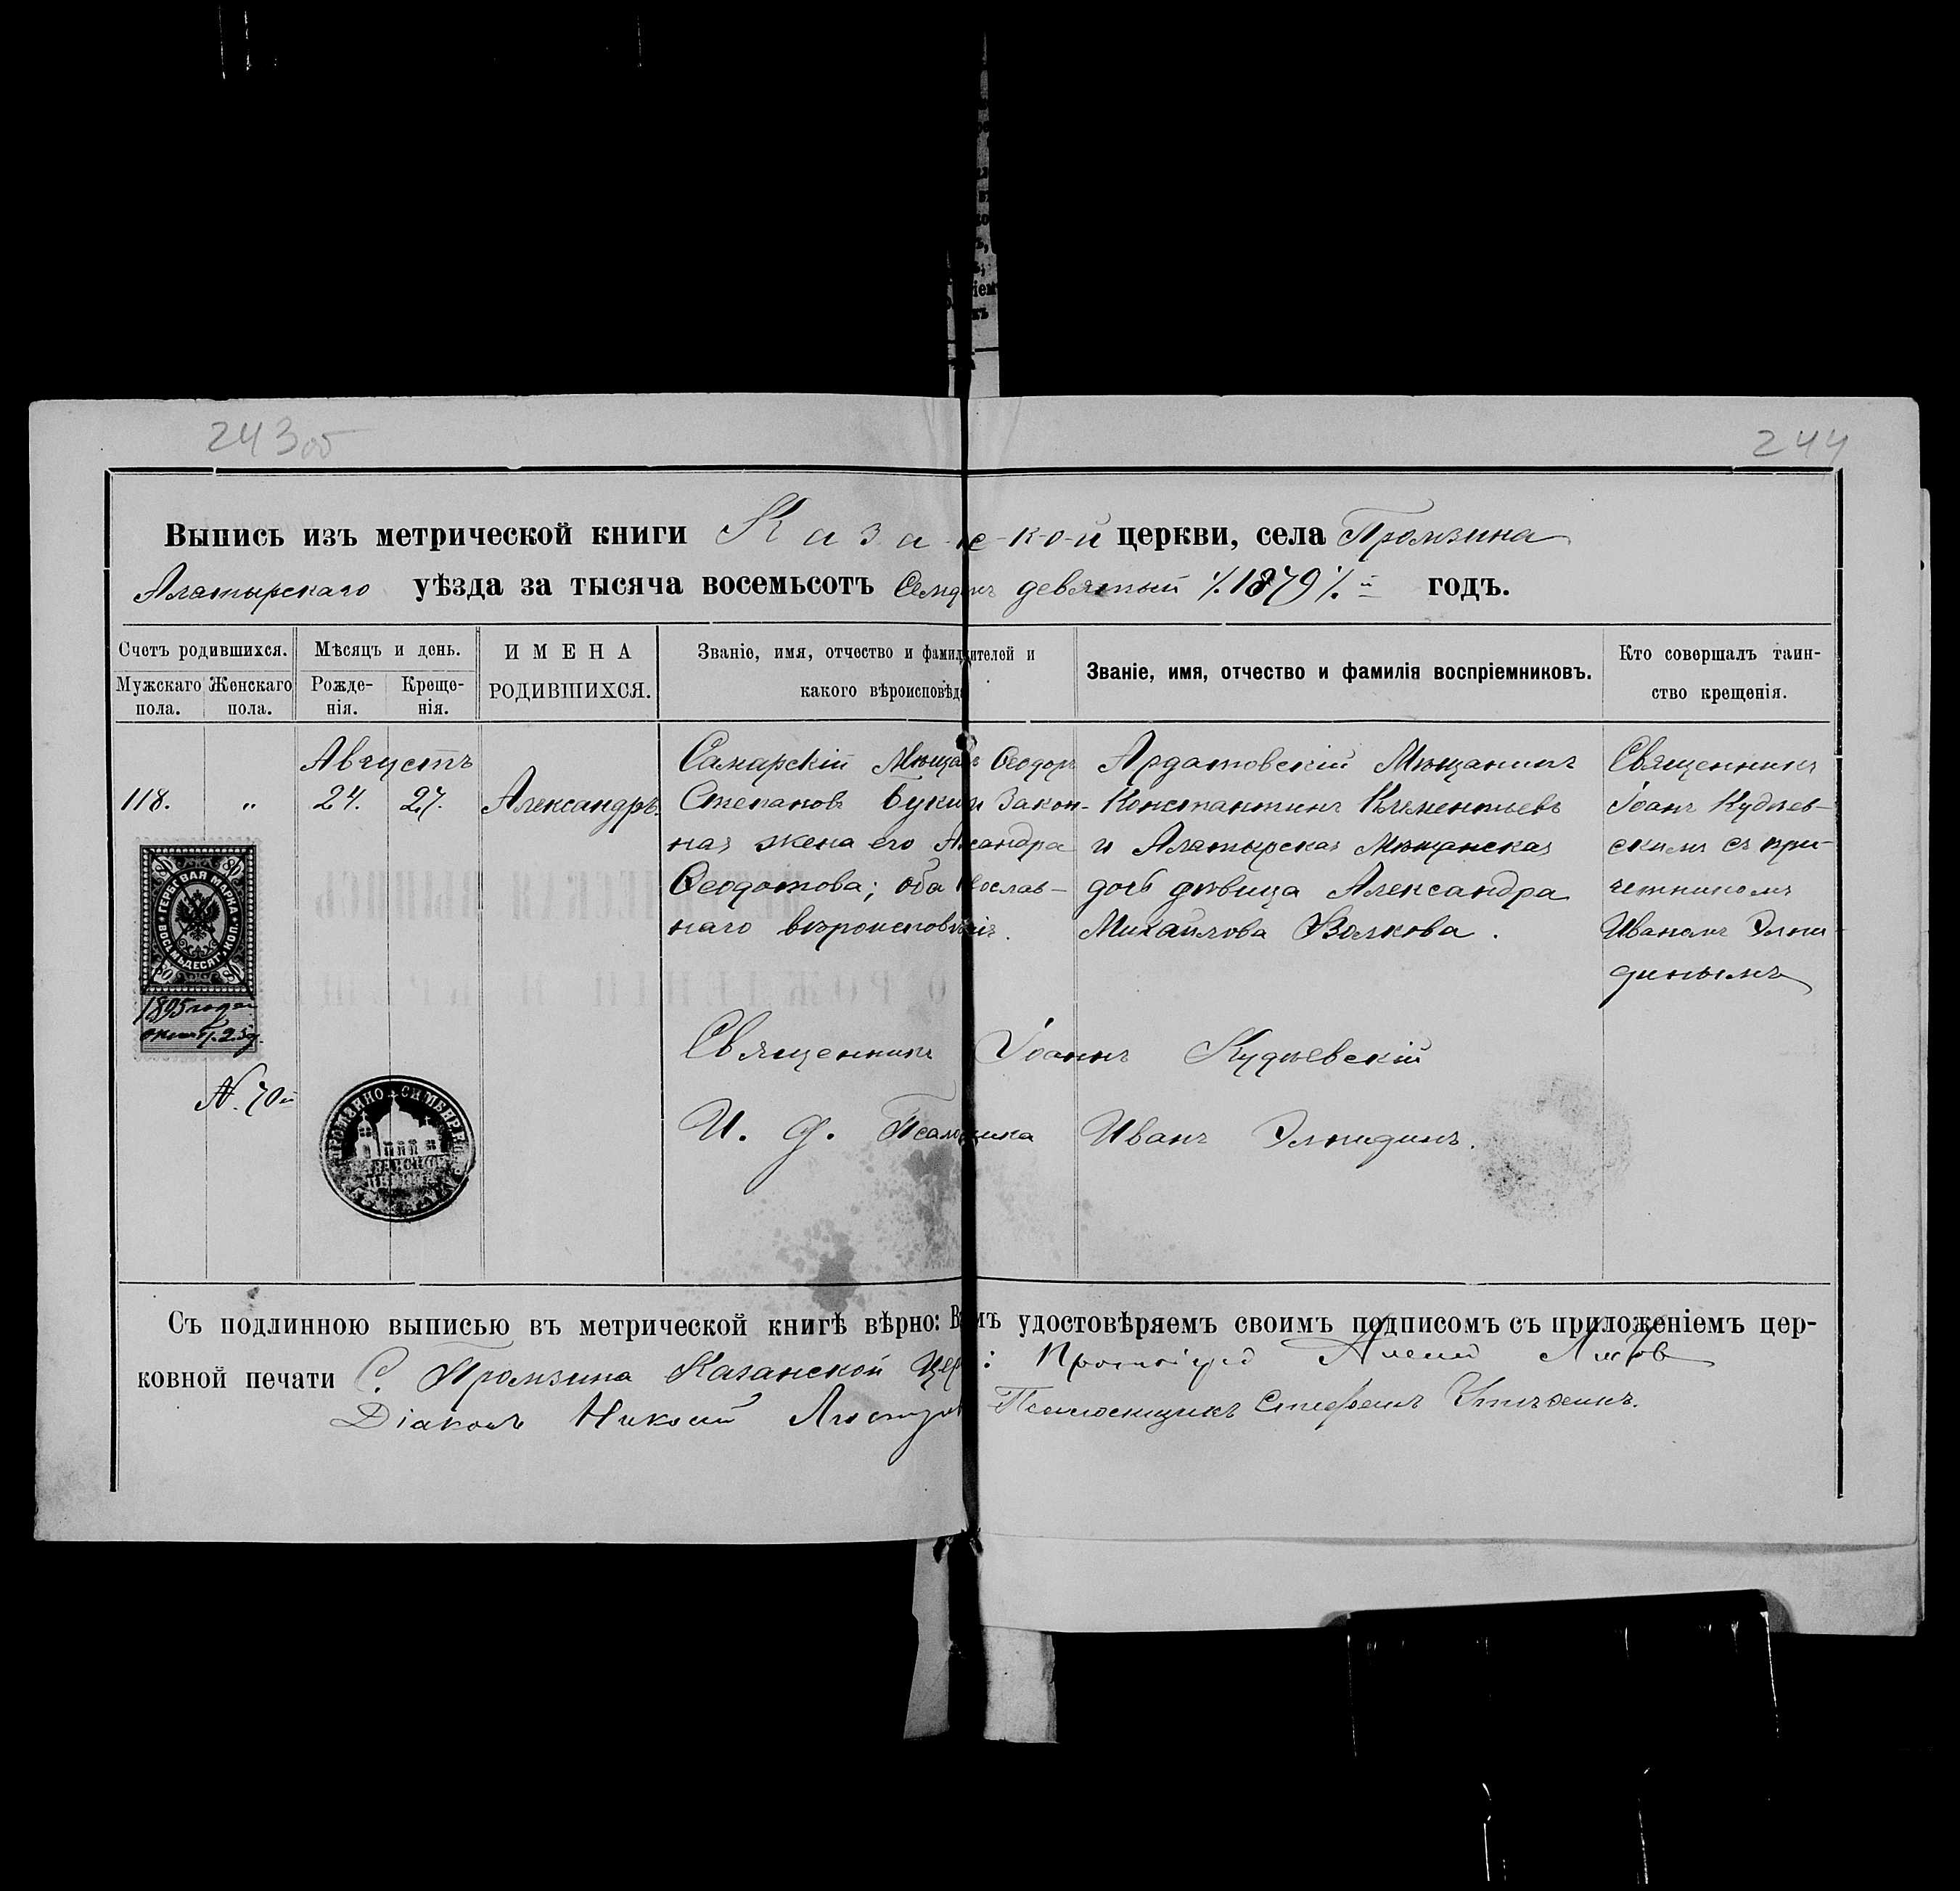 243 об
244
Выпись изъ метрической книги Казанской церкви, села Промзина
Алатырскаго уѣзда за тысяча восемьсотъ Семдесятъ девятый /:1879/: й годъ.
Счетъ родившихся.
Мужскаго пола.
Женскаго пола.
Мѣсяцъ и день.
Рожде-
нія.
Креще-
нія.
ИМЕНА
РОДИВШИХСЯ.
Званіе, имя, отчество и фамил ителей и
какого вѣроисповѣд
Званіе, имя, отчество и фамилія воспріемниковъ.
Кто совершалъ таин-
ство крещенія.
118.
„
Августъ
24. 27.
Александръ.
Самарскій Мѣщан Ѳеодоръ
Степановъ Букин Закон-
ная жена его А сандра
Ѳеодотова; оба ослав-
наго вѣроисповѣ ія.
Ардатовскій Мѣщанинъ
Константинъ Климентьевъ
и Алатырская Мѣщанская
дочь дѣвица Александра
Михайлова Волкова.
Священникъ
Іоанъ Кудѣев-
скимъ съ при-
четникомъ
Иваномъ Элпи-
динымъ
80 80
ГЕРБОВАЯ МАРКА
ВОСЕМЬДЕСЯТ КОП.
80 80
1895 года
окт. 25 д.
N. 70й
Священникъ Іоаннъ Кудѣевскій
И. д. Псалмщика Иванъ Элпидинъ.
Съ подлинною выписью въ метрической книгѣ вѣрно: В мъ удостовѣряемъ своимъ подписомъ съ приложеніемъ цер-
ковной печати С. Промзина Казанской Цер : Протоіерей
Діаконъ Николай
Псаломщикъ Стефанъ